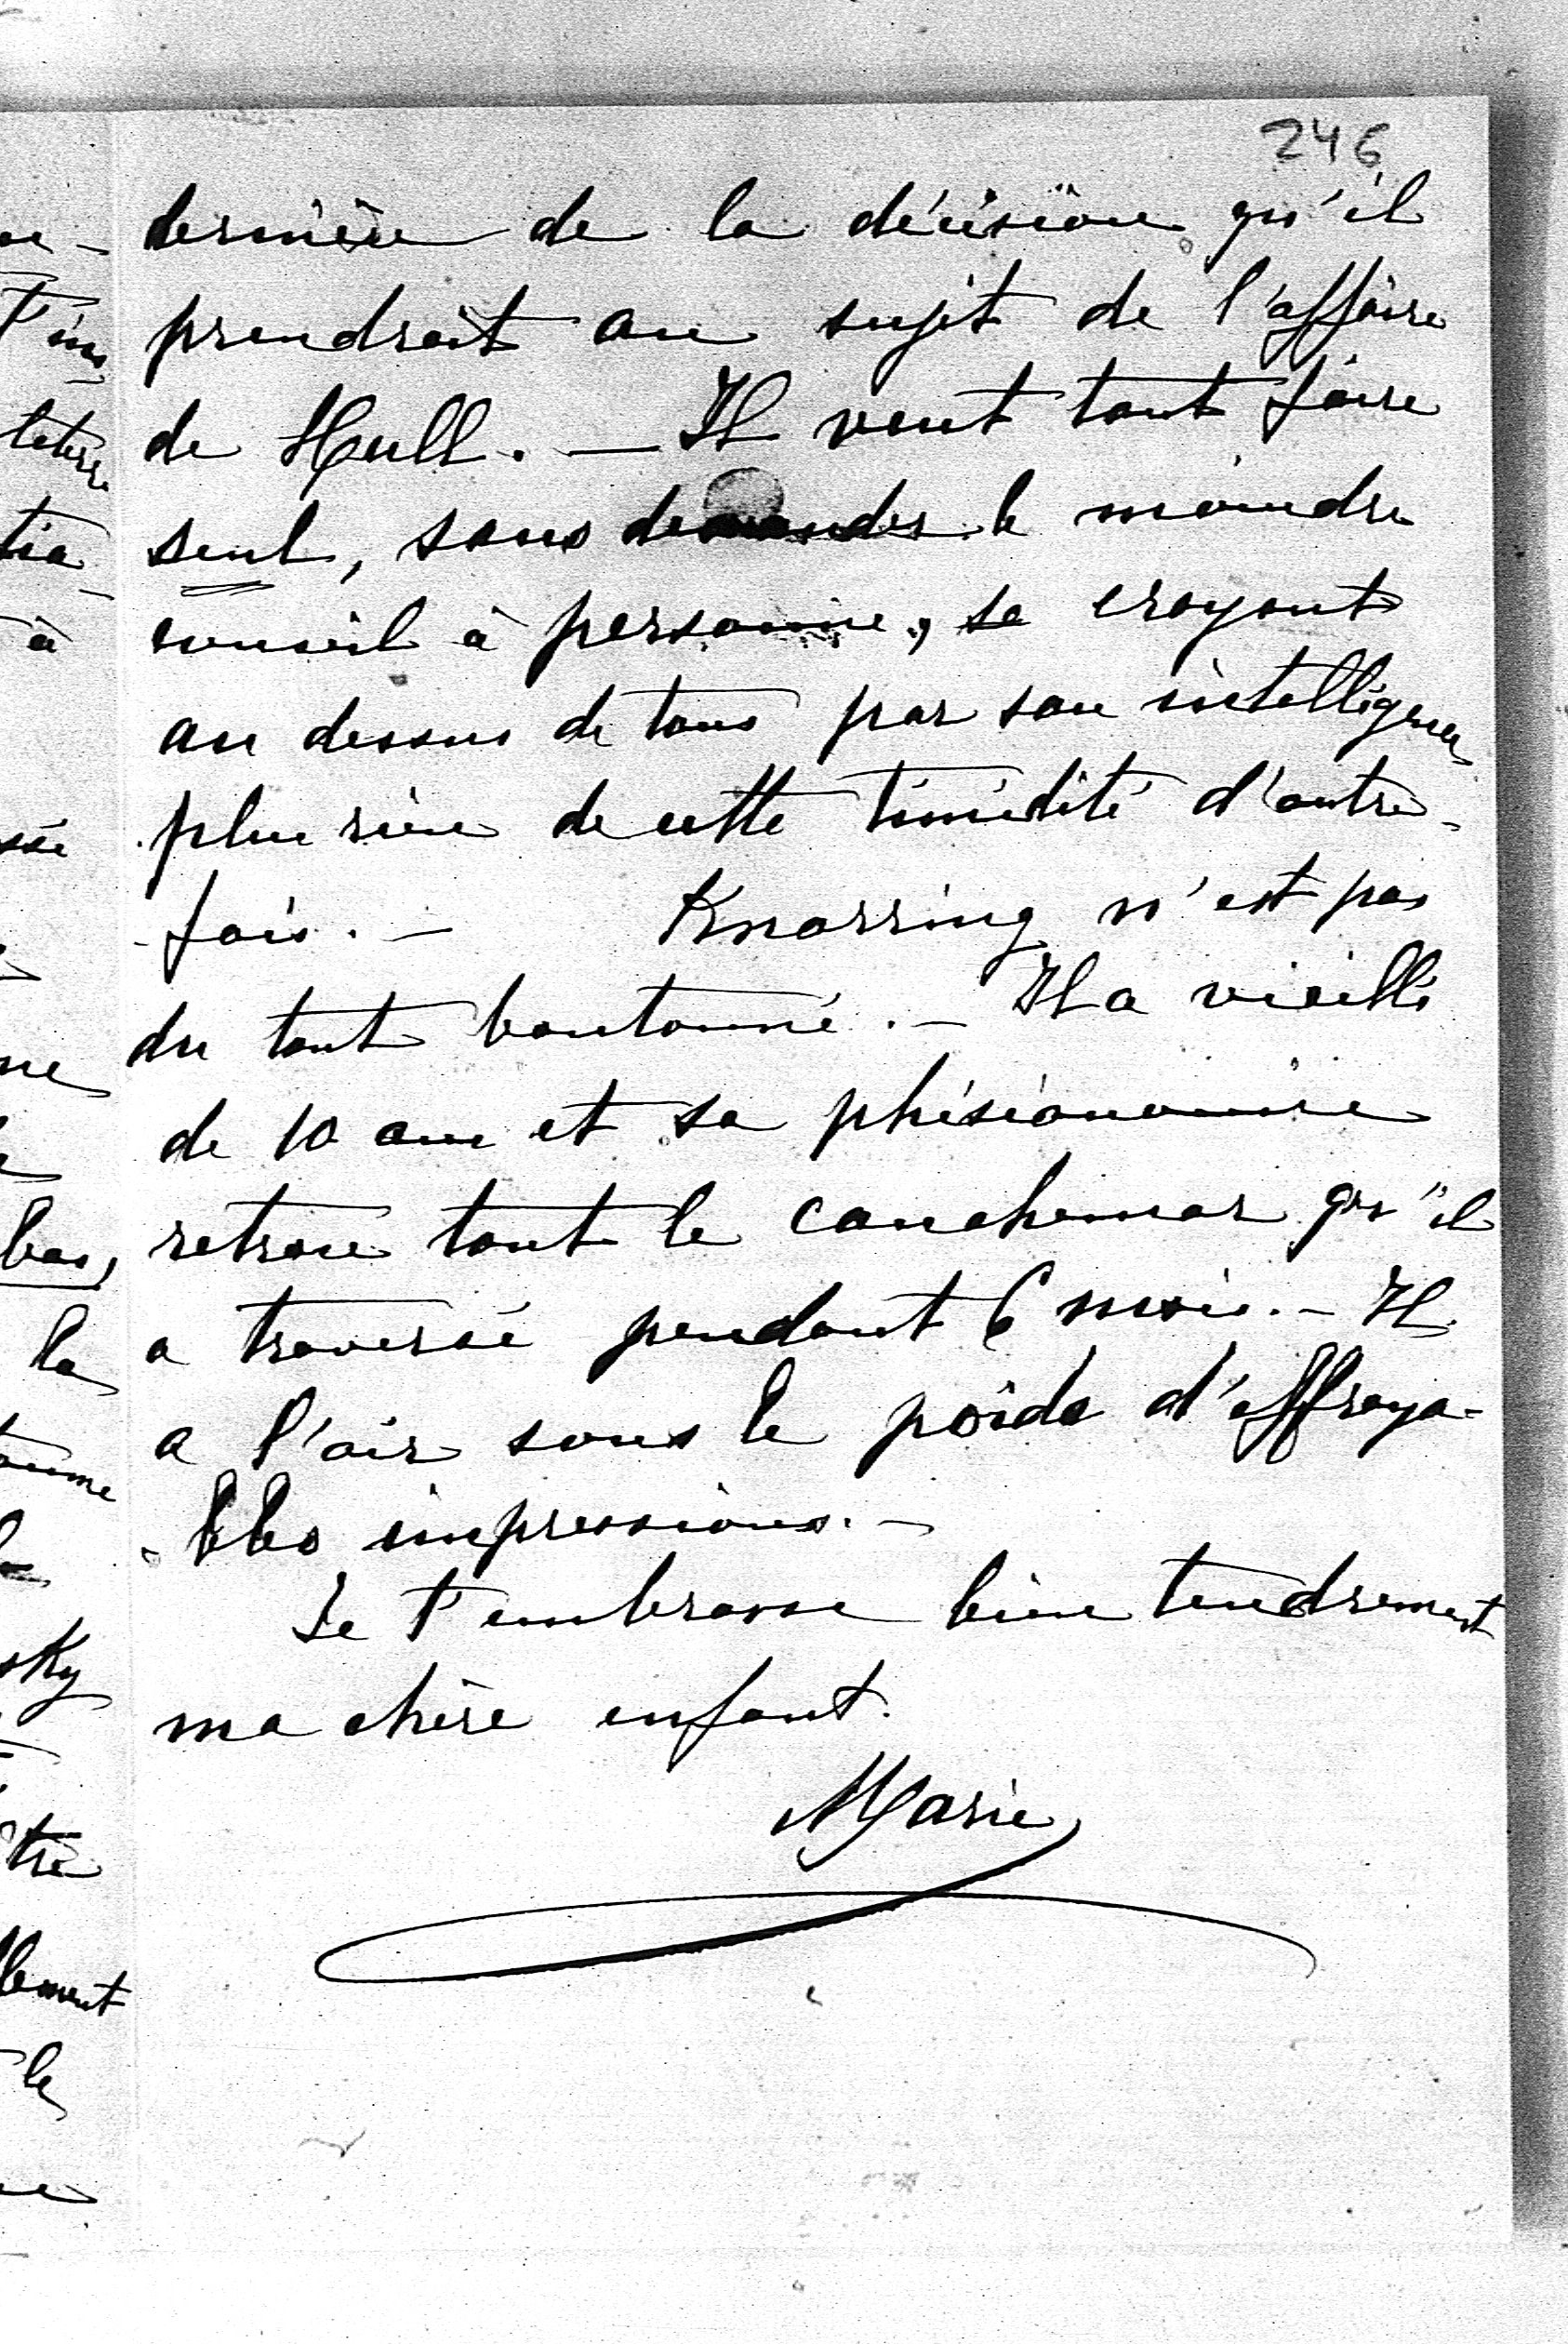 246
dernière de la décision qu'il
prendrait au sujet de l'affaire
de Hull. — Il veut tout faire
seul, sans demander le moindre
conseil à personne, se croyant
au dessus de tous par son intelligence
plus rien de cette timidité d'autre-
-fois. — Knorring n'est pas
du tout boutonné. — Il a vieilli
de 10 ans et sa phisionomie
retrace tout le cauchemar qu'il
a traversé pendant 6 mois. — Il
a l'air sous le poids d'effroya-
-bles impressions. —
Je t'embrasse bien tendrement
ma chère enfant.
Marie